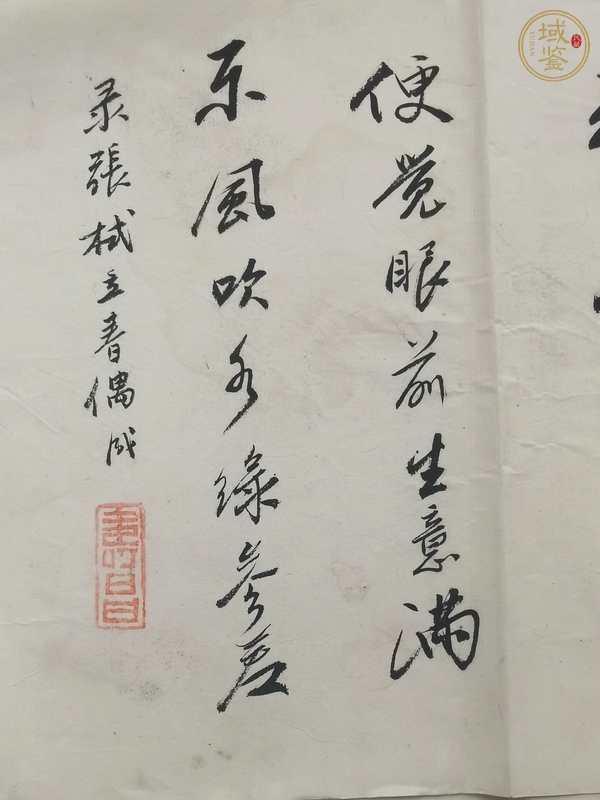 便觉眼前生意满
东风吹水绿参差
录張栻立春偶成
域鉴
YUJIAN